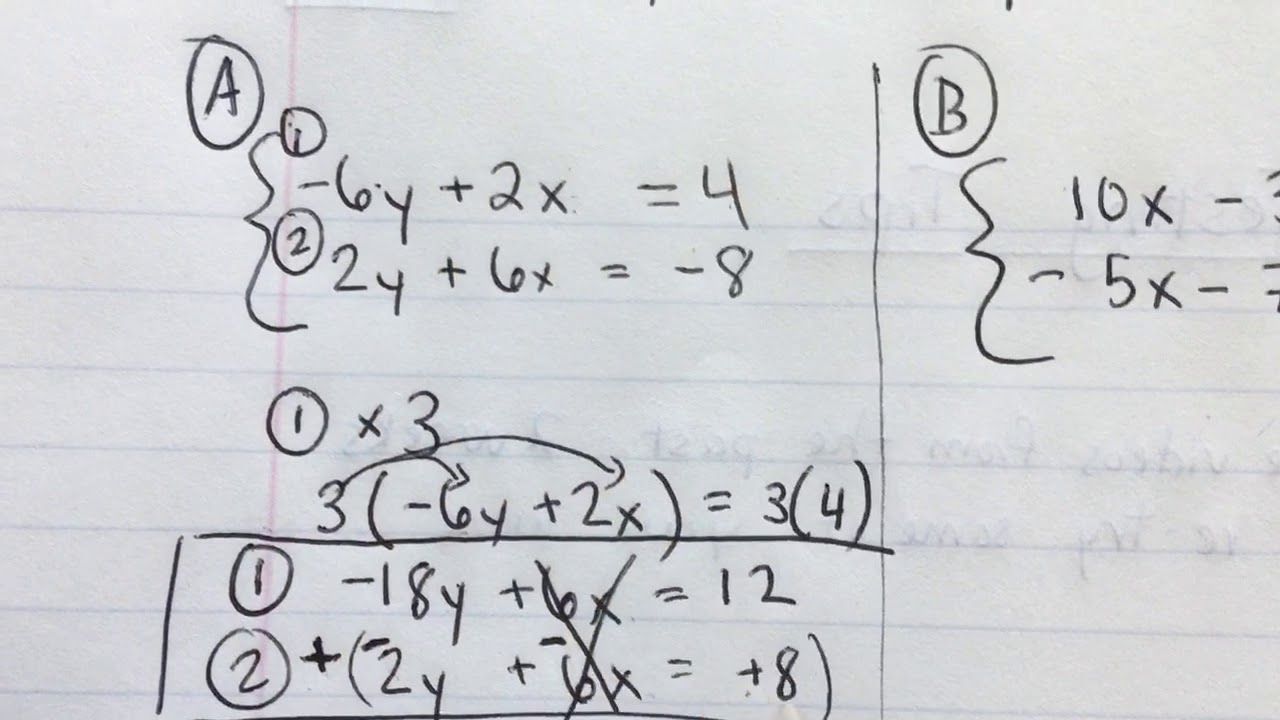 A
①
-6y + 2x = 4
② 2y + 6x = -8
① × 3
3(-6y + 2x) = 3(4)
① -18y + 6x = 12
② +(-2y + -6x = +8)
B
10x - 3
- 5x - 7